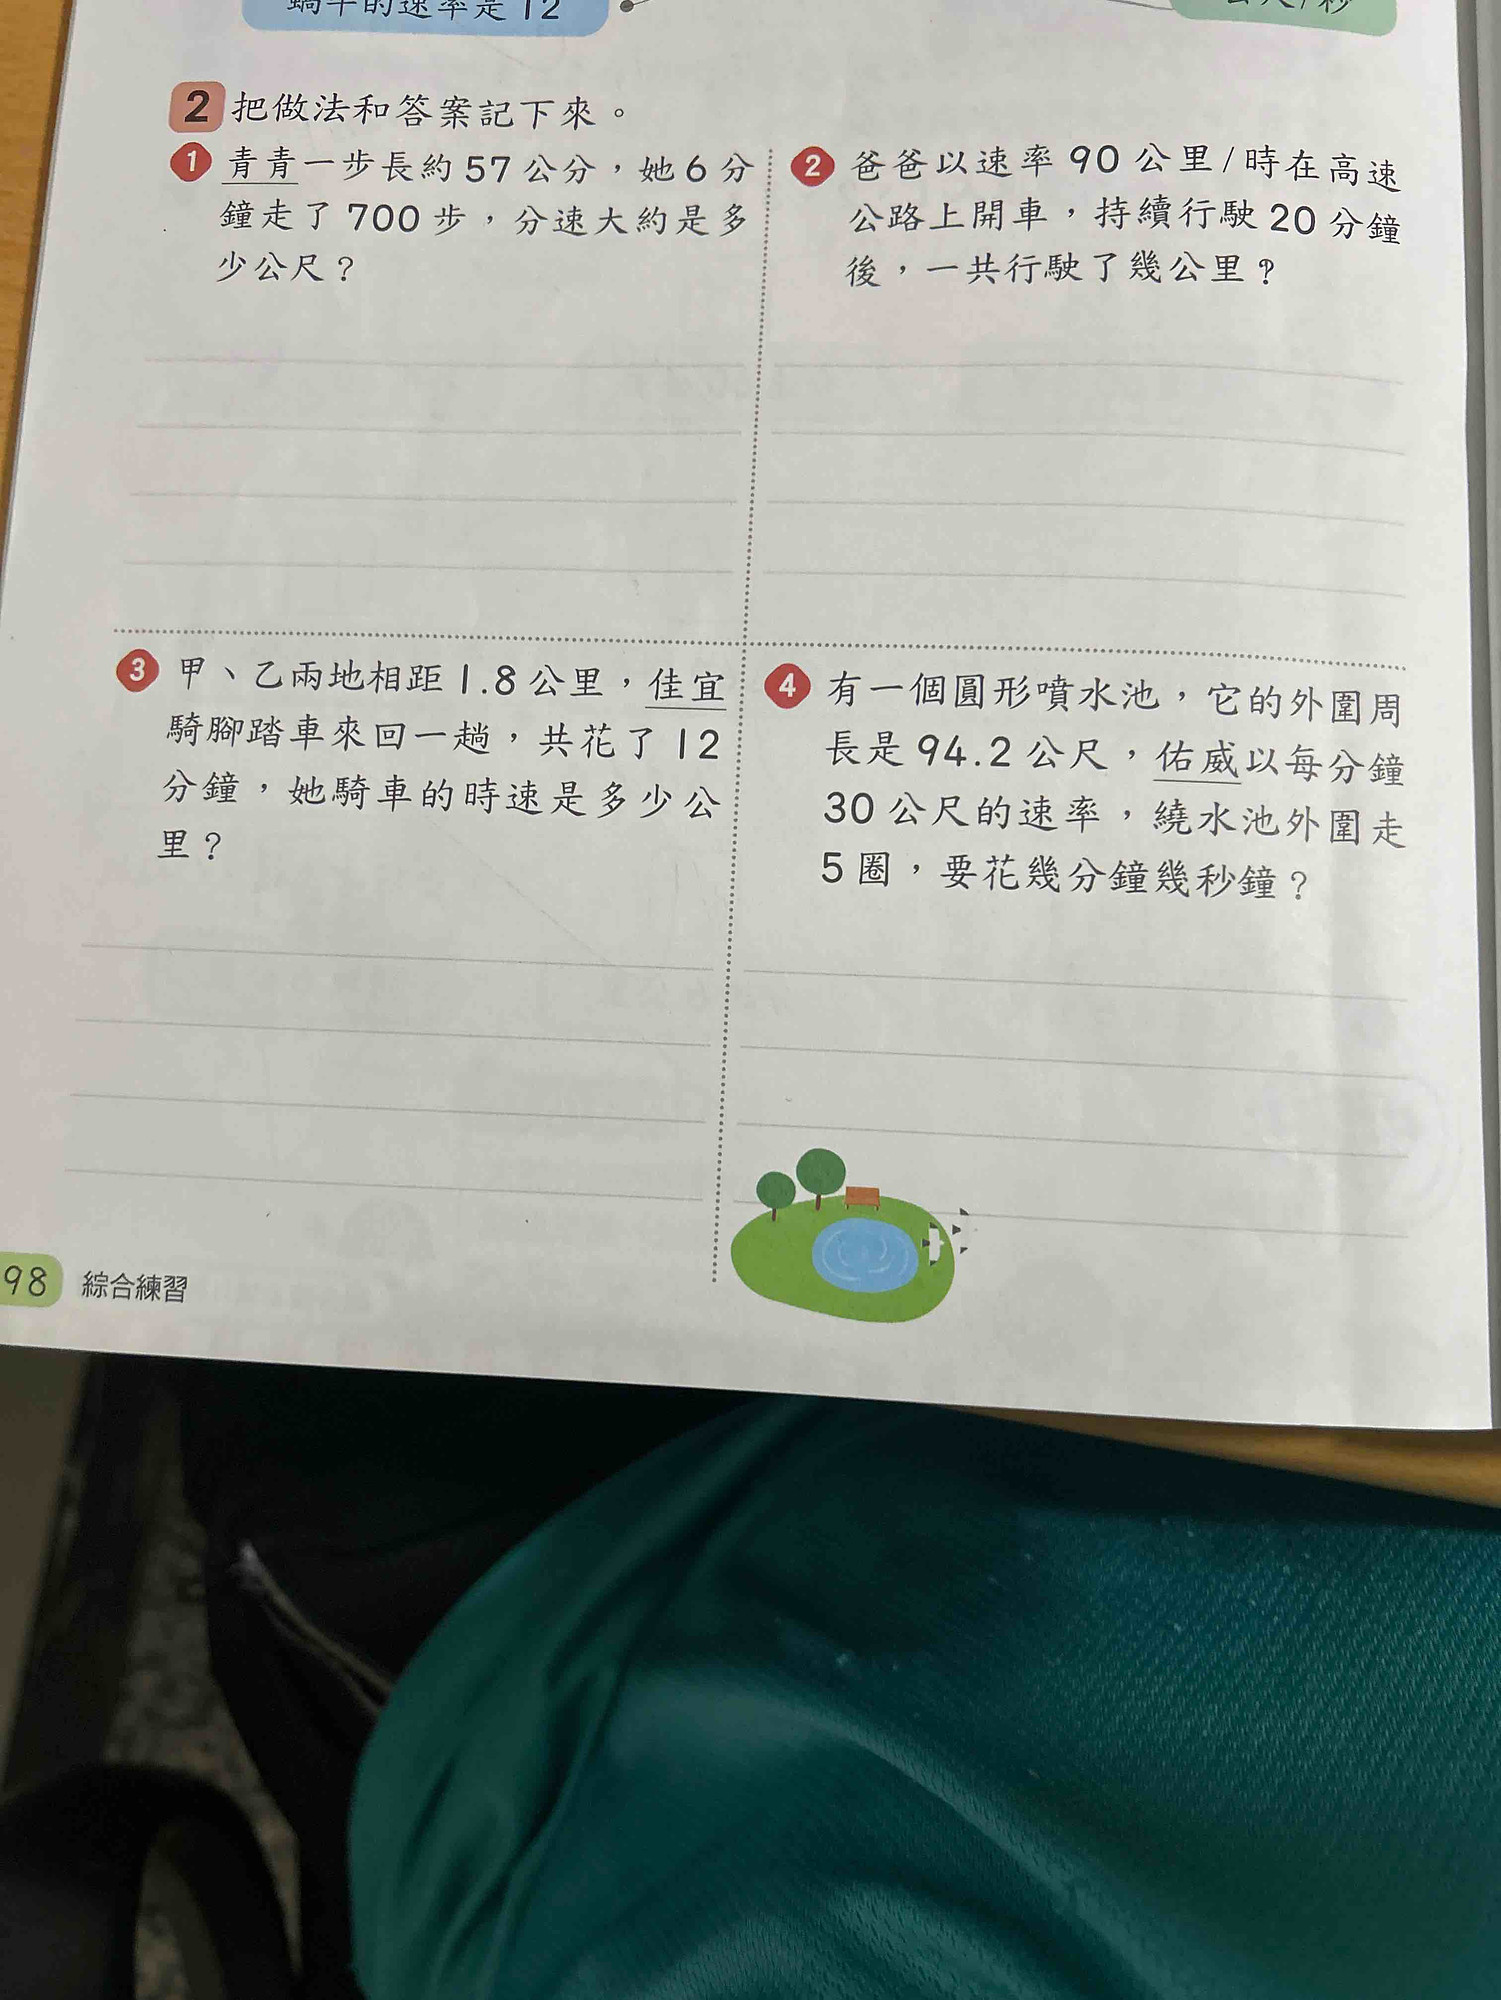 蝸牛的速率是 12
公尺/秒
2 把做法和答案記下來。
1 青青一步長約 57 公分，她 6 分
鐘走了 700 步，分速大約是多
少公尺？
2 爸爸以速率 90 公里/時在高速
公路上開車，持續行駛 20 分鐘
後，一共行駛了幾公里？
3 甲、乙兩地相距 1.8 公里，佳宜
騎腳踏車來回一趟，共花了 12
分鐘，她騎車的時速是多少公
里？
4 有一個圓形噴水池，它的外圍周
長是 94.2 公尺，佑威以每分鐘
30 公尺的速率，繞水池外圍走
5 圈，要花幾分鐘幾秒鐘？
98 綜合練習